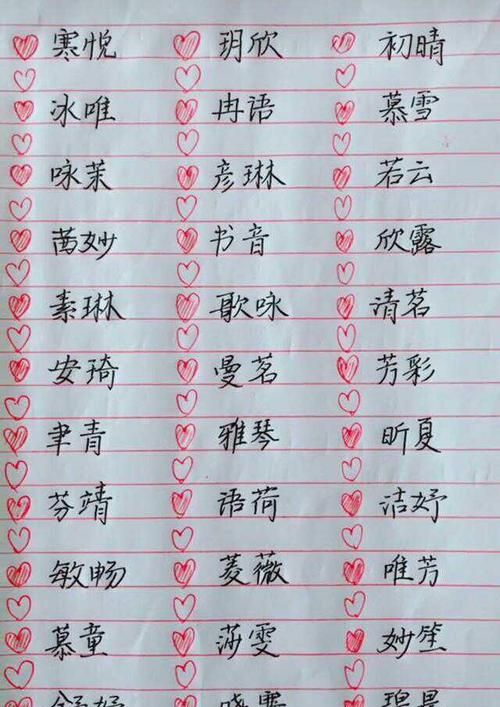 寒悦 玥欣 初晴
冰唯 冉语 慕雪
咏茉 彦琳 若云
茜妙 书音 欣露
素琳 歌咏 清茗
安琦 曼茗 芳彩
聿青 雅琴 昕夏
芬靖 语荷 洁妤
敏畅 菱薇 唯芳
慕童 莎雯 妙笙